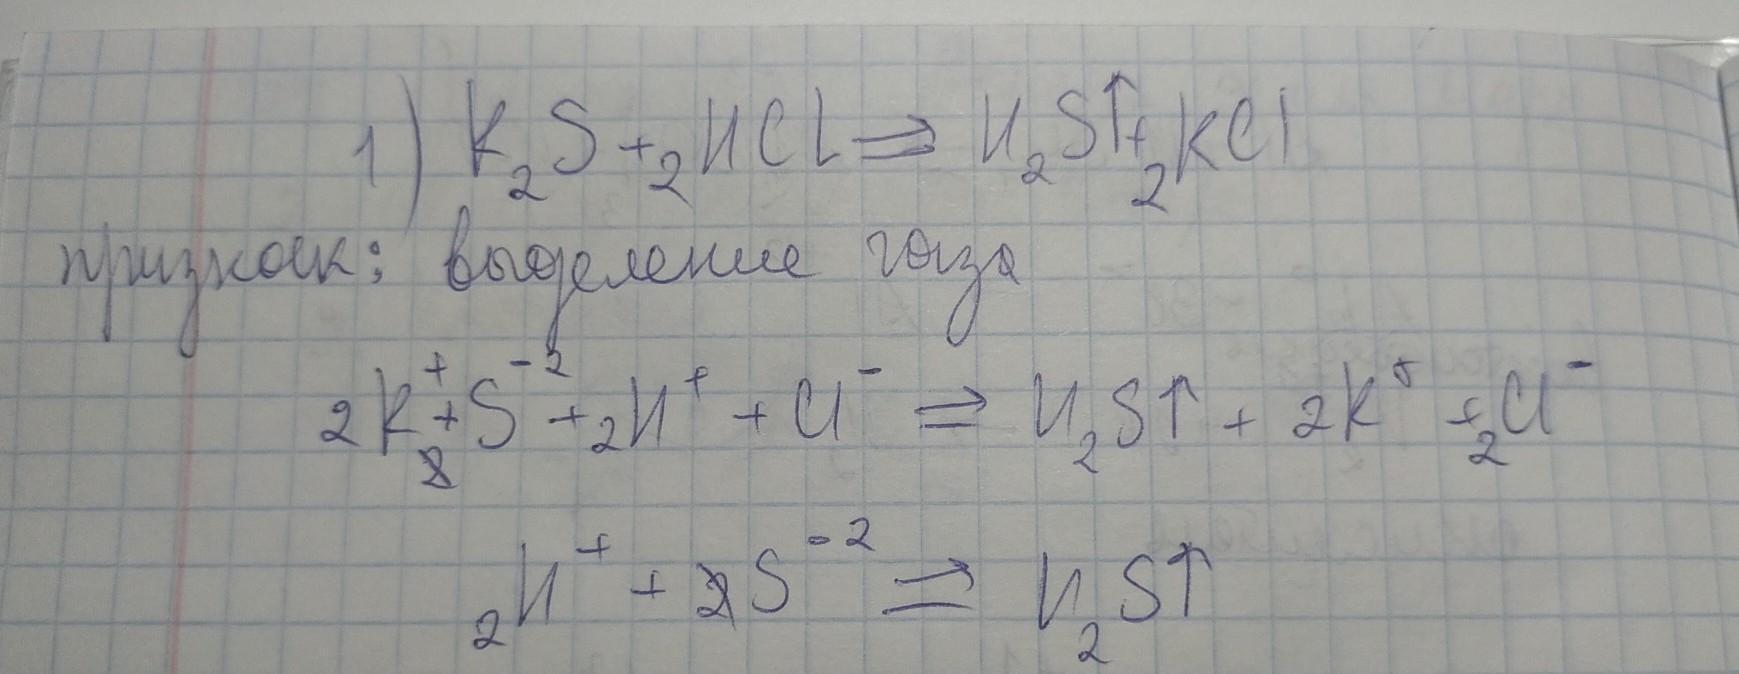 1) K₂S + 2HCl ⇒ H₂S↑ + 2KCl
признак: выделение газа
2K⁺ + S⁻² + 2H⁺ + Cl⁻ ⇒ H₂S↑ + 2K⁺ + 2Cl⁻
2H⁺ + S⁻² ⇒ H₂S↑